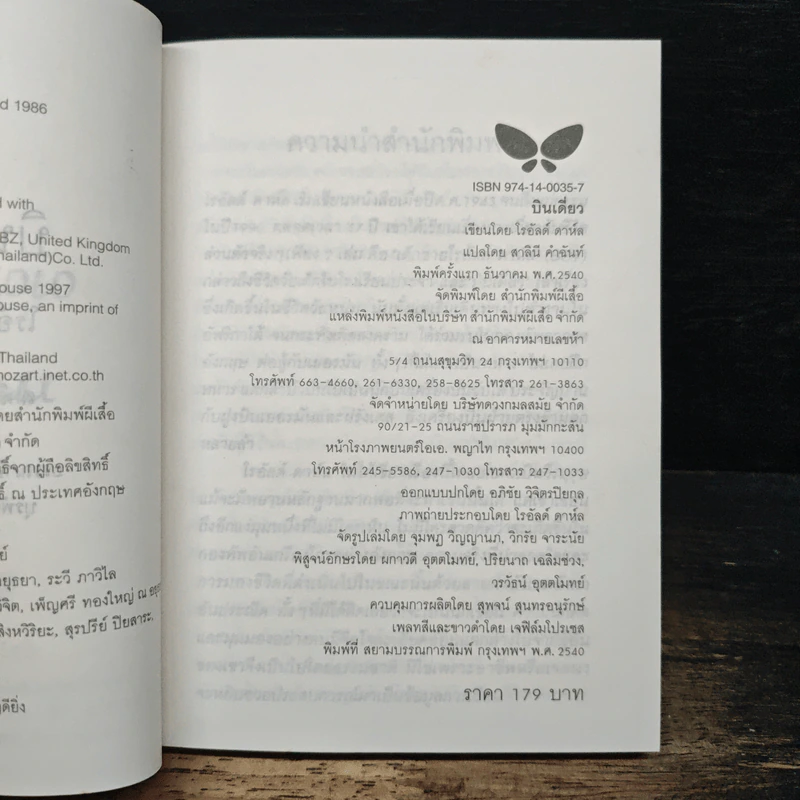 d 1986
d with
BZ, United Kingdom
hailand)Co. Ltd.
ouse 1997
ouse, an imprint of
Thailand
nozart.inet.co.th
ดยสำนักพิมพ์ผีเสื้อ
จำกัด
ธิ์จากผู้ถือลิขสิทธิ์
ธิ์ ณ ประเทศอังกฤษ
ย์
ยุธยา, ระวี ภาวิไล
วิจิต, เพ็ญศรี ทองใหญ่ ณ อยุธ
สิงหวิริยะ, สุรปรีย์ ปิยสาระ,
ดียิ่ง
ความนำสำนักพิมพ์
ISBN 974-14-0035-7
บินเดี่ยว
เขียนโดย โรอัลด์ ดาห์ล
แปลโดย สาลินี คำฉันท์
พิมพ์ครั้งแรก ธันวาคม พ.ศ.2540
จัดพิมพ์โดย สำนักพิมพ์ผีเสื้อ
แหล่งพิมพ์หนังสือในบริษัท สำนักพิมพ์ผีเสื้อ จำกัด
ณ อาคารหมายเลขห้า
5/4 ถนนสุขุมวิท 24 กรุงเทพฯ 10110
โทรศัพท์ 663-4660, 261-6330, 258-8625 โทรสาร 261-3863
จัดจำหน่ายโดย บริษัทดวงกมลสมัย จำกัด
90/21-25 ถนนราชปรารภ มุมมักกะสัน
หน้าโรงภาพยนตร์โอเอ. พญาไท กรุงเทพฯ 10400
โทรศัพท์ 245-5586, 247-1030 โทรสาร 247-1033
ออกแบบปกโดย อภิชัย วิจิตรปิยกุล
ภาพถ่ายประกอบโดย โรอัลด์ ดาห์ล
จัดรูปเล่มโดย จุมพฏ วิญญานภ, วิกรัย จาระนัย
พิสูจน์อักษรโดย ผกาวดี อุตตโมทย์, ปริยนาถ เฉลิมช่วง,
วรวัธน์ อุตตโมทย์
ควบคุมการผลิตโดย สุพจน์ สุนทรอนุรักษ์
เพลทสีและขาวดำโดย เจฟิล์มโปรเซส
พิมพ์ที่ สยามบรรณการพิมพ์ กรุงเทพฯ พ.ศ. 2540
ราคา 179 บาท